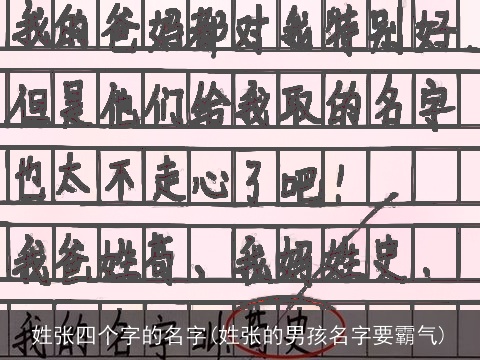 我的爸妈都对我特别好.
但是他们给我取的名字
也太不走心了吧！
我爸姓苟、我妈姓史、
我的名字叫苟史
姓张四个字的名字(姓张的男孩名字要霸气)